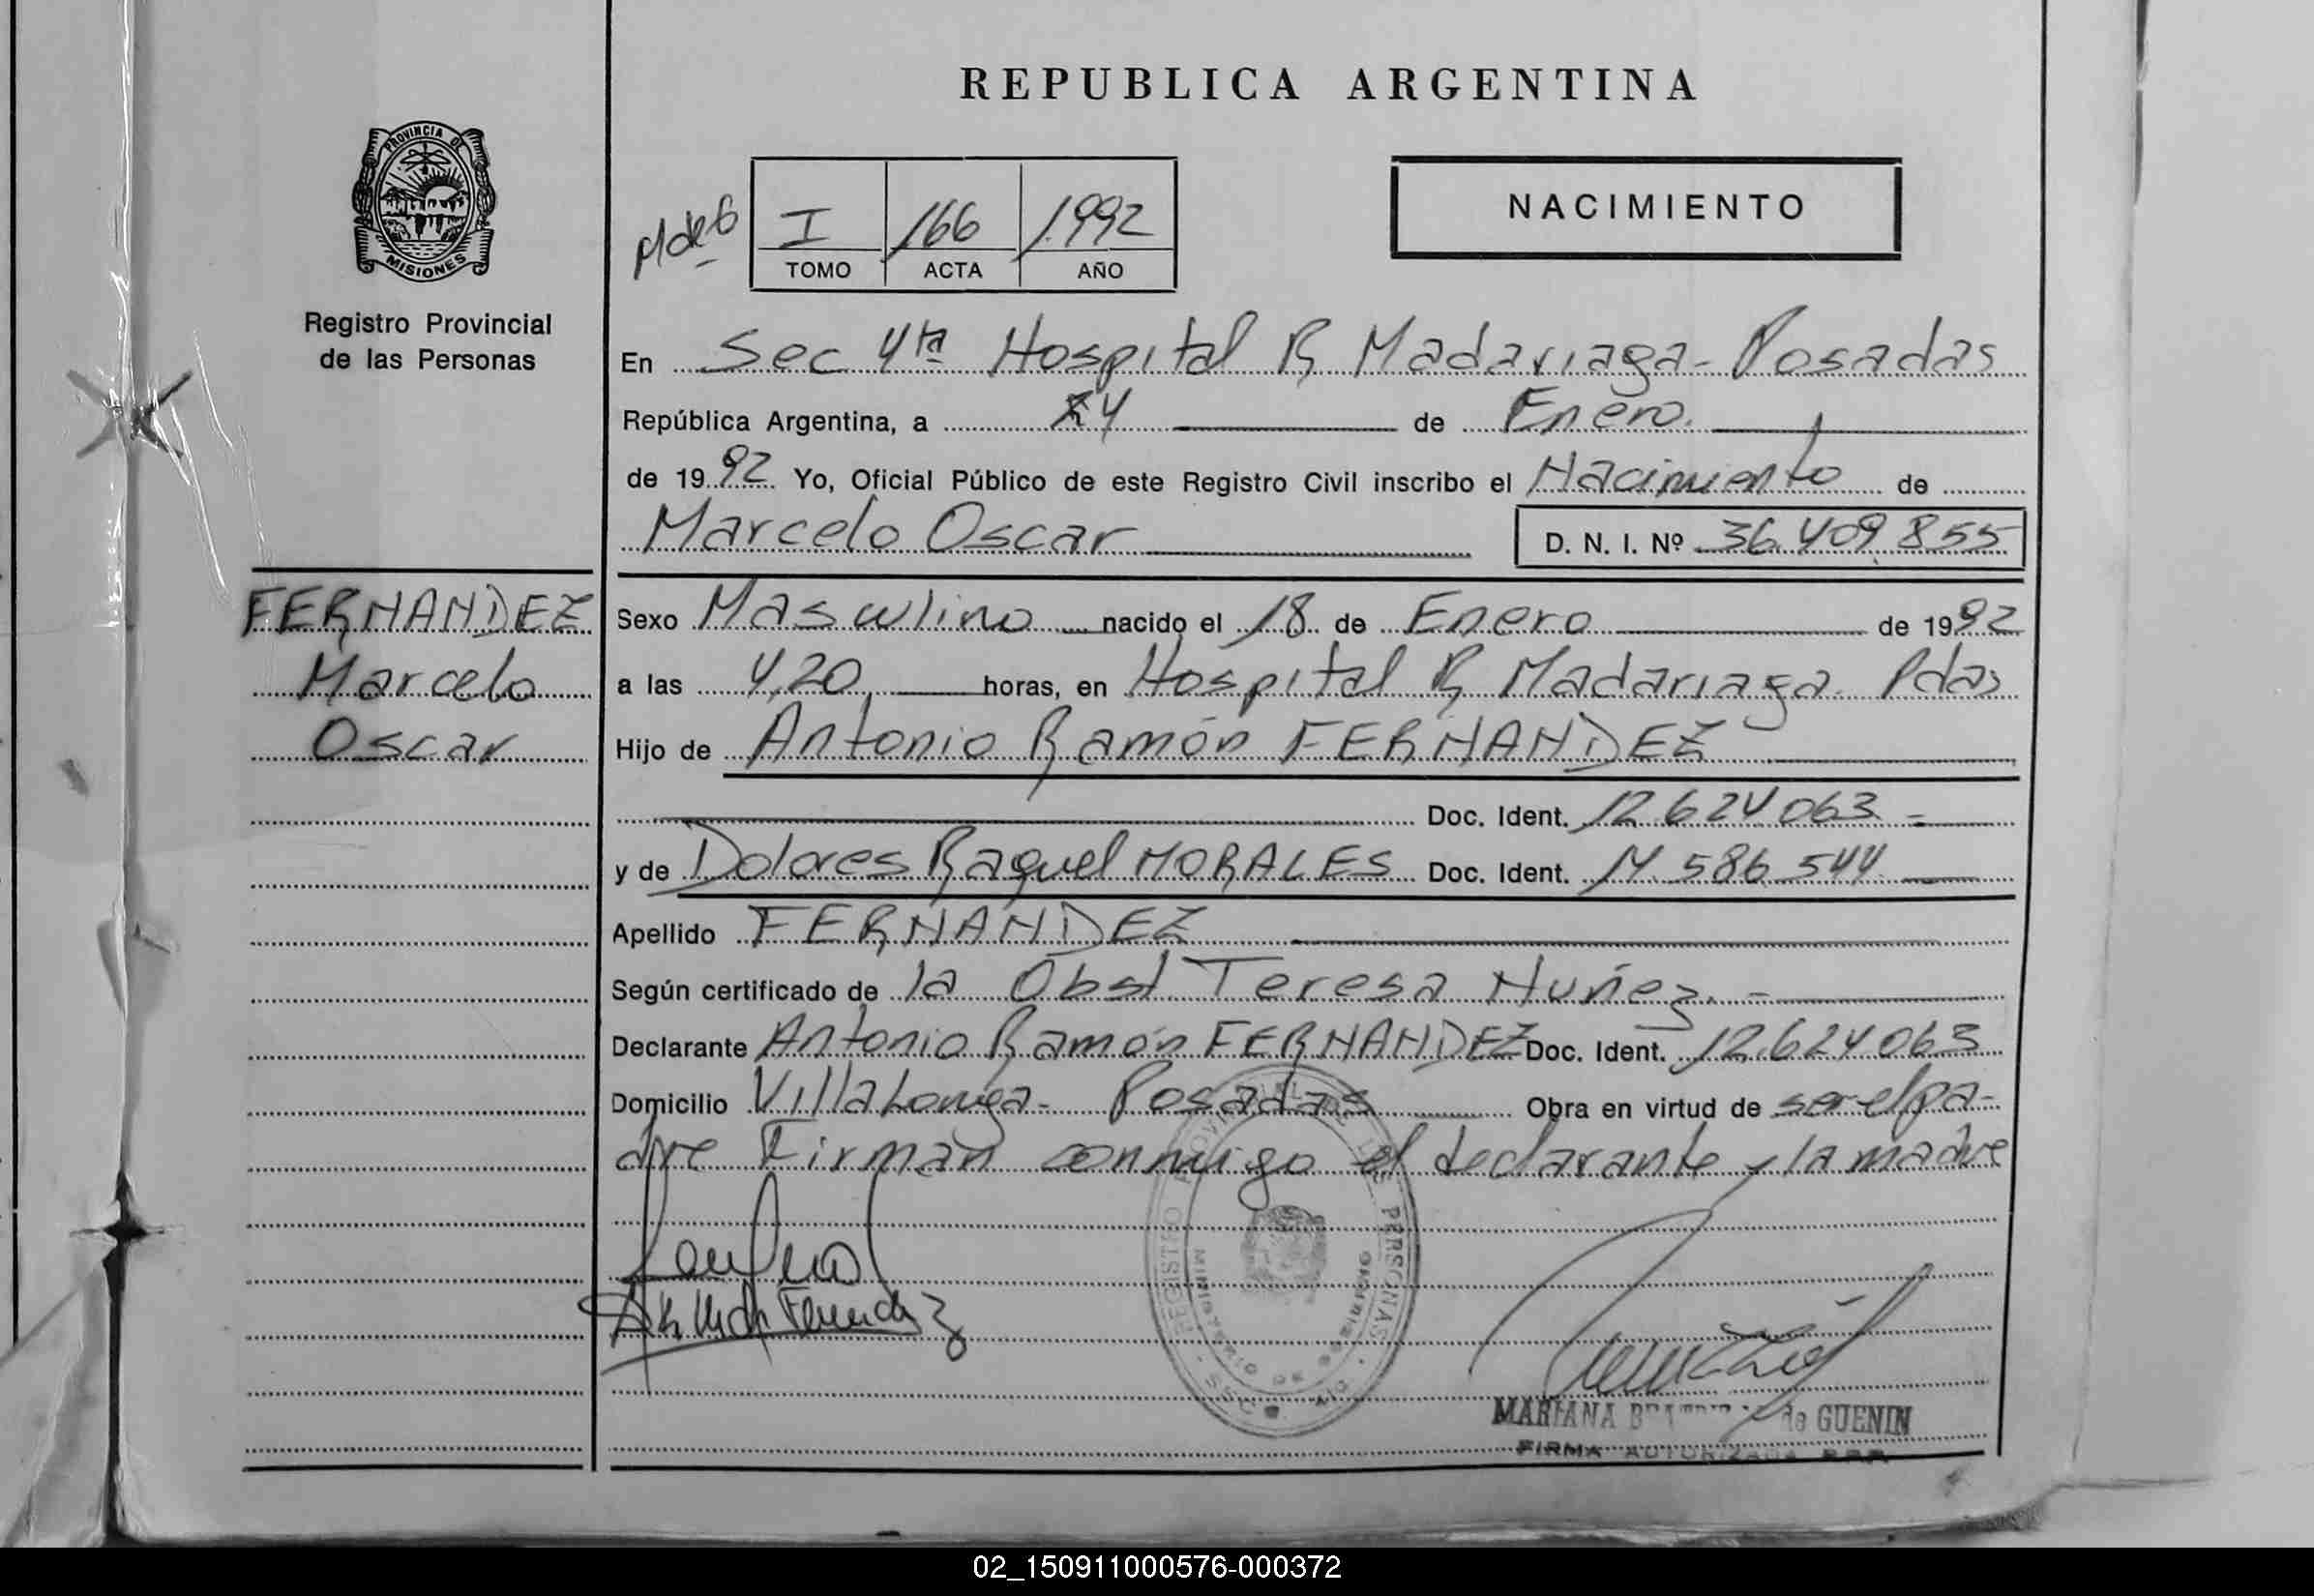 REPUBLICA ARGENTINA
PROVINCIA DE
MISIONES
Registro Provincial
de las Personas
NACIMIENTO
I 166 1992
TOMO ACTA AÑO
En Sec 4ta Hospital R Madariaga - Posadas
República Argentina, a de Enero.
de 1992 Yo, Oficial Público de este Registro Civil inscribo el Nacimiento de
Marcelo Oscar D. N. I. Nº 36.409.855
FERNANDEZ
Marcelo
Oscar
Sexo Masculino nacido el 18 de Enero de 1992
a las 4,20 horas, en Hospital R Madariaga. Pdas
Hijo de Antonio Ramón FERNANDEZ
Doc. Ident. 12.624.063 -
y de Dolores Raquel MORALES Doc. Ident. 14.586.544
Apellido FERNANDEZ
Según certificado de la Obst Teresa Nuñez. -
Declarante Antonio Ramón FERNANDEZ Doc. Ident. 12.624.063
Domicilio Villa Longa - Posadas Obra en virtud de ser el pa-
dre Firman conmigo el declarante y la madre
REGISTRO PROVINCIAL DE LAS PERSONAS
MINISTERIO DE GOBIERNO
MARIANA BEATRIZ de GUENIN
FIRMA AUTORIZADA
02_150911000576-000372